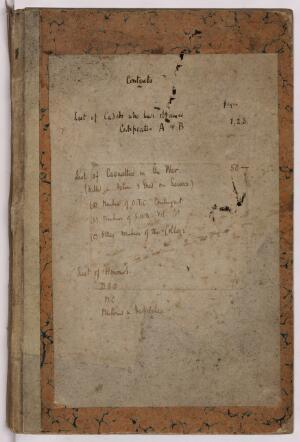 Contents
Page
List of Cadets who have obtained
Certificates A & B 1, 2, 3
List of Casualties in the War 50 —
(Killed in Action & Died on Service)
(a) Members of O.T.C. Contingent
(b) Members of
(c) Other Members of the College
List of Honours
D.S.O
M.C
Mentions in Despatches